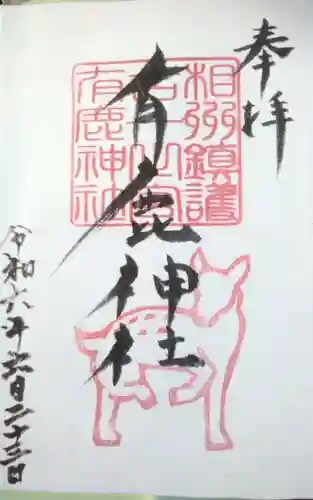 奉拝
有鹿神社
相州鎮護
有鹿神社
令和六年六月二十三日